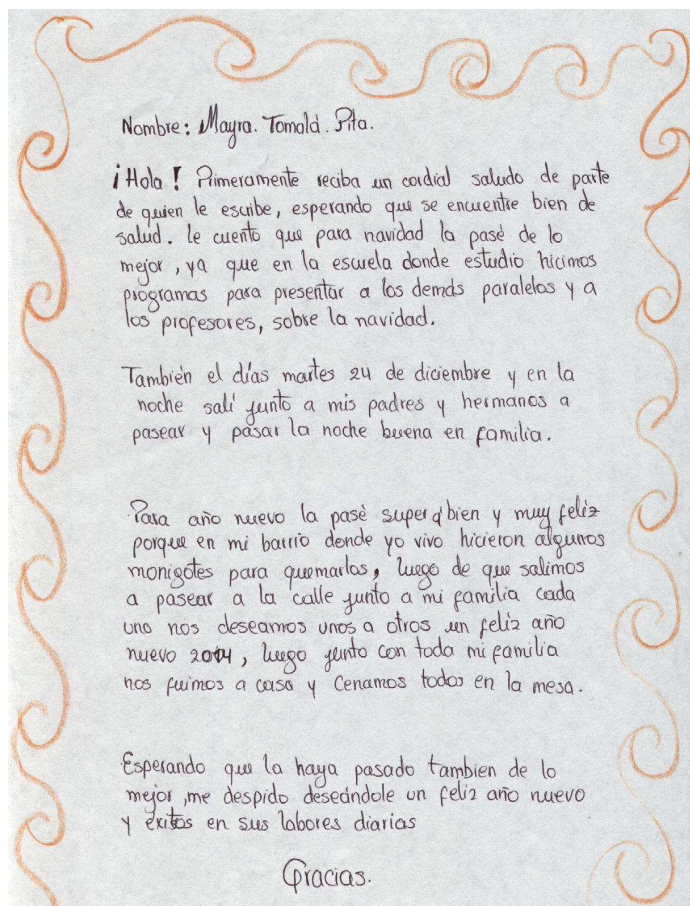 Nombre: Mayra. Tomalá. Pita.
¡Hola! Primeramente reciba un cordial saludo de parte
de quien le escribe, esperando que se encuentre bien de
salud. le cuento que para navidad la pasé de lo
mejor, ya que en la escuela donde estudio hicimos
programas para presentar a los demás paralelos y a
los profesores, sobre la navidad.
También el días martes 24 de diciembre y en la
noche salí junto a mis padres y hermanos a
pasear y pasar la noche buena en familia.
Para año nuevo la pasé super bien y muy feliz
porque en mi barrio donde yo vivo hicieron algunos
monigotes para quemarlos, luego de que salimos
a pasear a la calle junto a mi familia cada
uno nos deseamos unos a otros un feliz año
nuevo 2014, luego junto con toda mi familia
nos fuimos a casa y Cenamos todos en la mesa.
Esperando que la haya pasado tambien de lo
mejor, me despido deseándole un feliz año nuevo
y éxitos en sus labores diarias
Gracias.